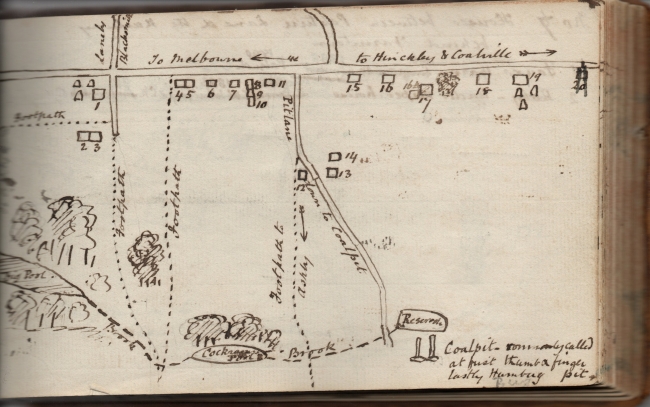 To Melbourne
to Hinckley & Coalville
Lane by
Blacksmiths
1
Footpath
2 3
4 5 6 7 8 11
9
10
15 16
17 18 19
20
Pit lane
14
13
12
Down to Coalpit
Footpath
Footpath
Footpath to
Ashby
Pool
Brook
Brook
Reserve
Coalpit - commonly called
at first thumb & finger
lastly Humbug pit -